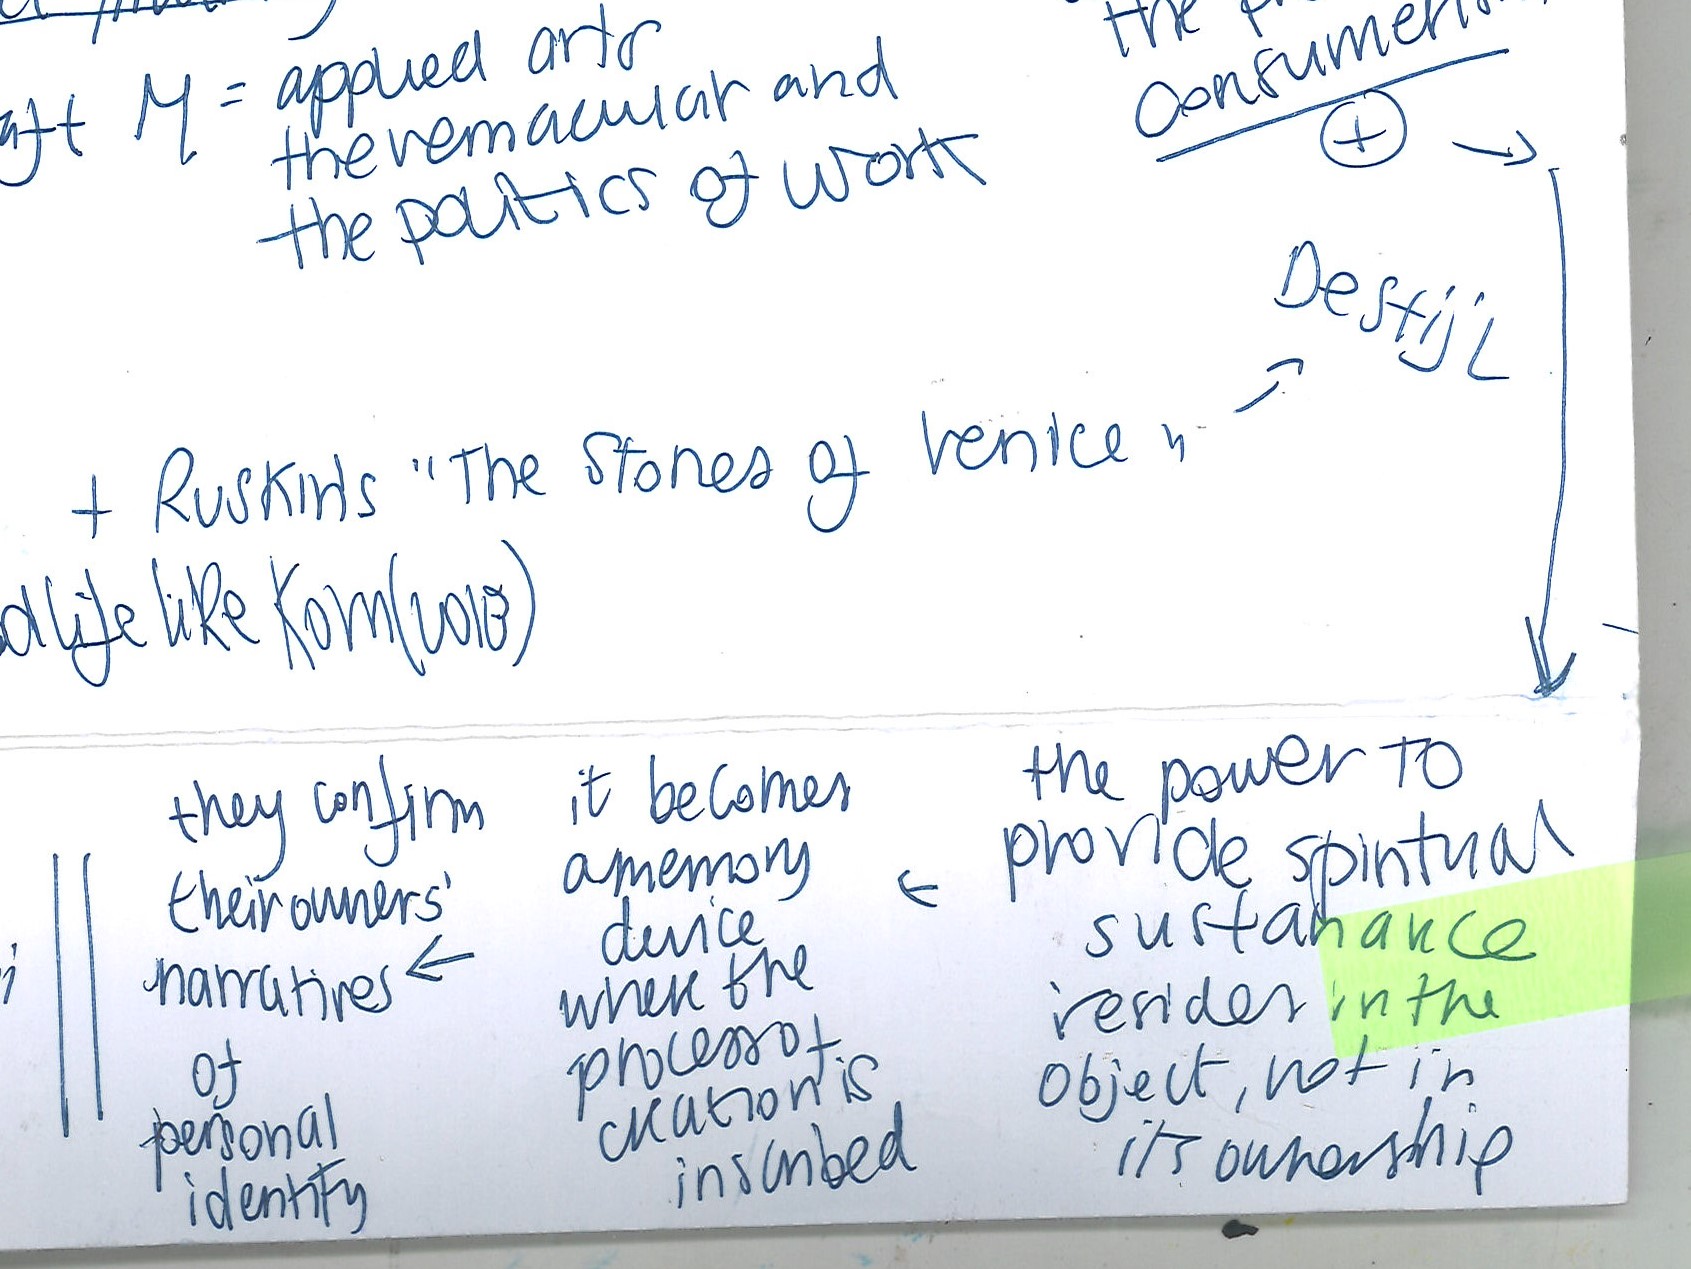 M = applied arts
the vernacular and
the politics of work
the
consumerism
+ →
Destijl
+ Ruskin's "The Stones of Venice"
life like Korn (2013)
they confirm
their owners'
narratives ←
of
personal
identity
it becomes
a memory
device
where the
process of
creation is
inscribed
←
the power to
provide spiritual
sustanance
resides in the
object, not in
its ownership